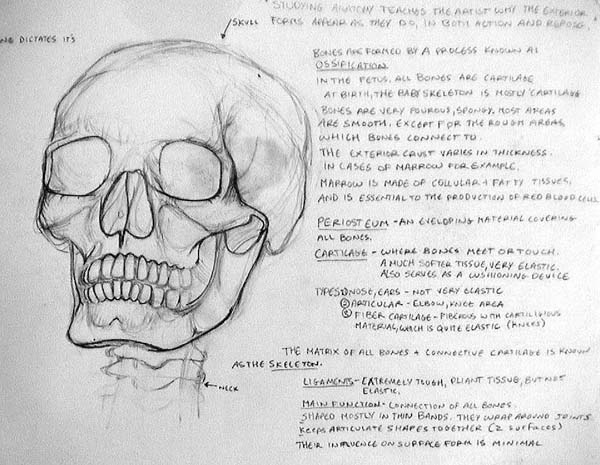 STUDYING ANATOMY TEACHES THE ARTIST WHY THE EXTERIOR
FORMS APPEAR AS THEY DO, IN BOTH ACTION AND REPOSE.
SKULL
DICTATES IT'S
BONES ARE FORMED BY A PROCESS KNOWN AS
OSSIFICATION
IN THE FETUS. ALL BONES ARE CARTILAGE
AT BIRTH, THE BABY SKELETON IS MOSTLY CARTILAGE
BONES ARE VERY POUROUS, SPONGY. MOST AREAS
ARE SMOOTH. EXCEPT FOR THE ROUGH AREAS
WHICH BONES CONNECT TO.
THE EXTERIOR CRUST VARIES IN THICKNESS.
IN CASES OF MARROW FOR EXAMPLE.
MARROW IS MADE OF CELLULAR + FATTY TISSUES,
AND IS ESSENTIAL TO THE PRODUCTION OF RED BLOOD CELLS
PERIOSTEUM - AN EVELOPING MATERIAL COVERING
ALL BONES.
CARTILAGE - WHERE BONES MEET OR TOUCH.
A MUCH SOFTER TISSUE, VERY ELASTIC.
ALSO SERVES AS A CUSHIONING DEVICE
TYPES ① NOSE, EARS - NOT VERY ELASTIC
② ARTICULAR - ELBOW, KNEE AREA
③ FIBER CARTILAGE - FIBEROUS WITH CARTILIGIOUS
MATERIAL, WHICH IS QUITE ELASTIC (KNEES)
THE MATRIX OF ALL BONES + CONNECTIVE CARTILAGE IS KNOWN
AS THE SKELETON.
NECK
LIGAMENTS - EXTREMELY TOUGH, PLIANT TISSUE, BUT NOT
ELASTIC.
MAIN FUNCTION - CONNECTION OF ALL BONES.
SHAPED MOSTLY IN THIN BANDS. THEY WRAP AROUND JOINTS
KEEPS ARTICULATE SHAPES TOGETHER (2 SURFACES)
THEIR INFLUENCE ON SURFACE FORM IS MINIMAL